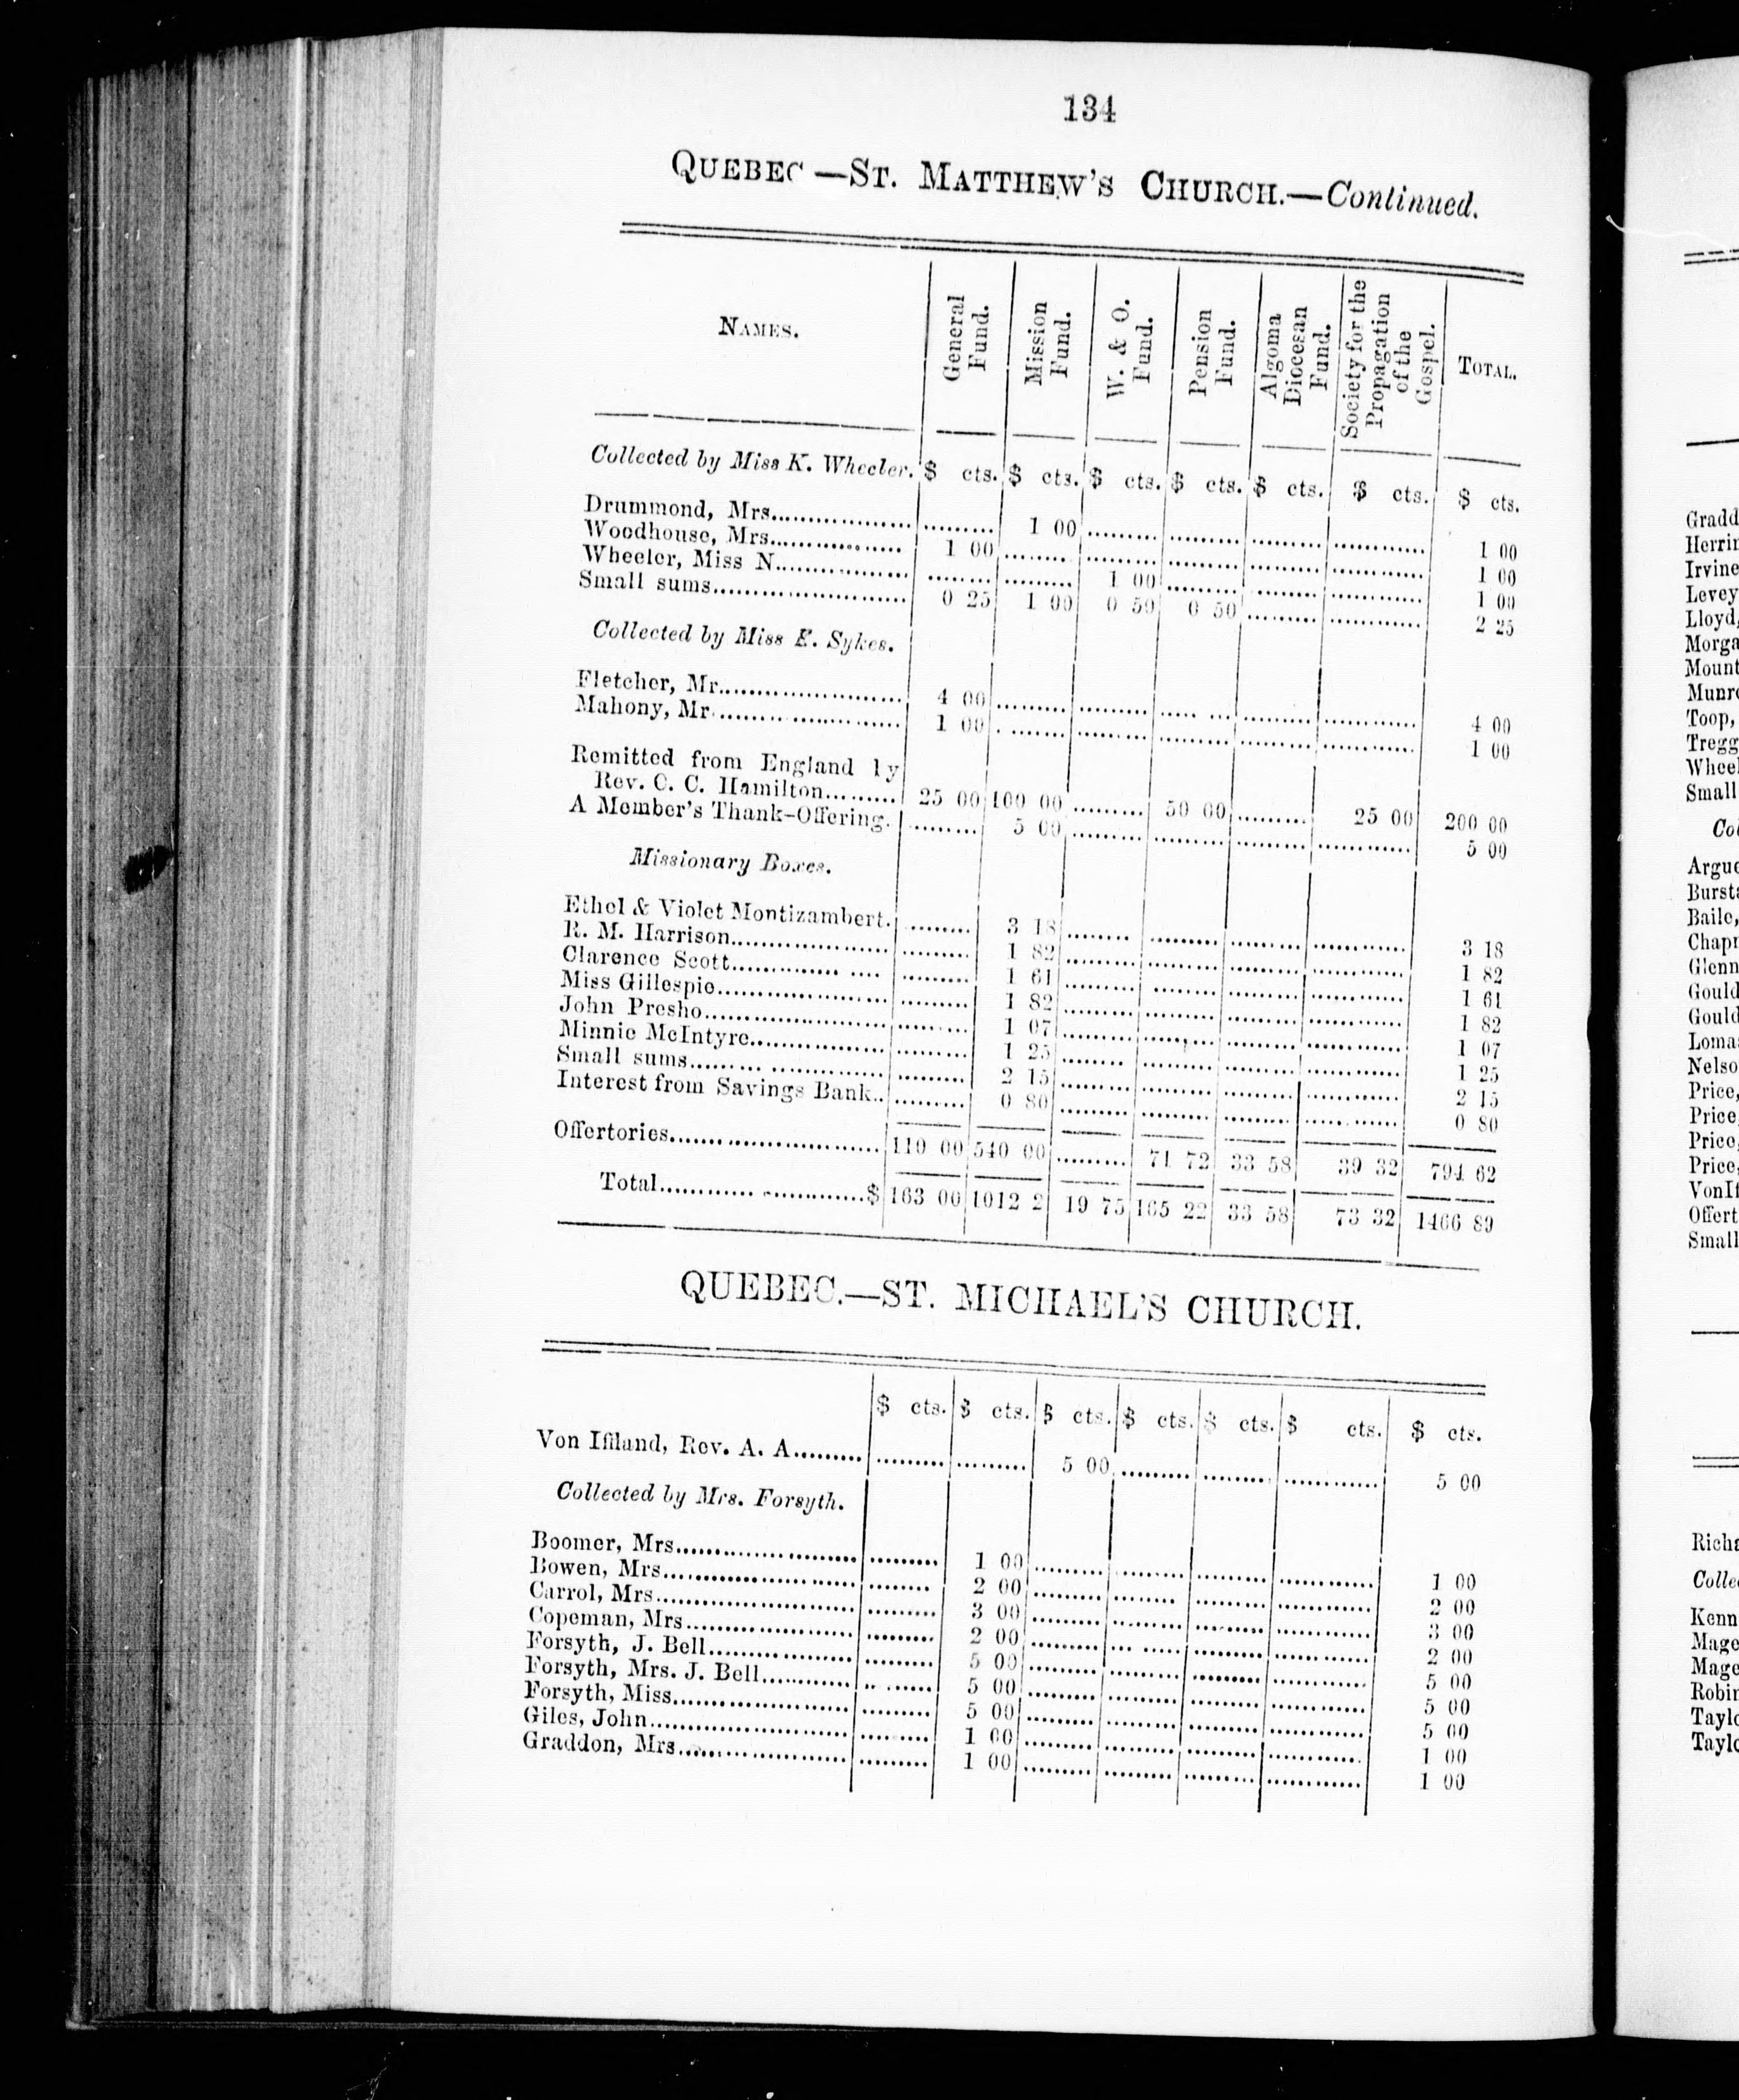 134
QUEBEC —ST. MATTHEW'S CHURCH.—Continued.
NAMES. General Fund. Mission Fund. W. & O. Fund. Pension Fund. Algoma Diocesan Fund. Society for the Propagation of the Gospel. TOTAL.
Collected by Miss K. Wheeler. $ cts. $ cts. $ cts. $ cts. $ cts. $ cts. $ cts.
Drummond, Mrs. 1 00 1 00
Woodhouse, Mrs. 1 00 1 00
Wheeler, Miss N. 1 00 1 00
Small sums. 0 25 1 00 0 50 0 50 2 25
Collected by Miss E. Sykes.
Fletcher, Mr. 4 00 4 00
Mahony, Mr. 1 00 1 00
Remitted from England by
Rev. C. C. Hamilton. 25 00 100 00 50 00 25 00 200 00
A Member's Thank-Offering. 5 00 5 00
Missionary Boxes.
Ethel & Violet Montizambert. 3 18 3 18
R. M. Harrison. 1 82 1 82
Clarence Scott. 1 61 1 61
Miss Gillespie. 1 82 1 82
John Presho. 1 07 1 07
Minnie McIntyre. 1 25 1 25
Small sums. 2 15 2 15
Interest from Savings Bank. 0 80 0 80
Offertories. 110 00 540 00 71 72 33 58 39 32 794 62
Total. $ 163 00 1012 2 19 75 165 22 33 58 73 32 1466 89
QUEBEC.—ST. MICHAEL'S CHURCH.
$ cts. $ cts. $ cts. $ cts. $ cts. $ cts. $ cts.
Von Iffland, Rev. A. A. 5 00 5 00
Collected by Mrs. Forsyth.
Boomer, Mrs. 1 00 1 00
Bowen, Mrs. 2 00 2 00
Carrol, Mrs. 3 00 3 00
Copeman, Mrs. 2 00 2 00
Forsyth, J. Bell. 5 00 5 00
Forsyth, Mrs. J. Bell. 5 00 5 00
Forsyth, Miss. 5 00 5 00
Giles, John. 1 00 1 00
Graddon, Mrs. 1 00 1 00